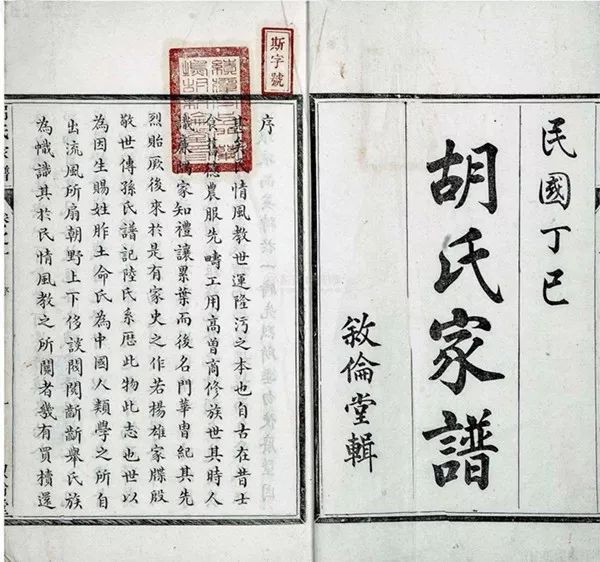 民國丁巳
胡氏家譜
敘倫堂輯
斯字號
序
甚矣民情風教世運隆污之本也自古在昔士
食舊德農服先疇工用高曾商修族世其時人
識廉家知禮讓累葉而後名門華胄紀其先
烈貽厥後來於是有家史之作若楊雄家牒殷
敬世傳孫氏譜記陸氏系厯此物此志也世以
為因生賜姓胙土命氏為中國人類學之所自
出流風所扇朝野上下侈談閥閱斷斷舉氏族
為幟識其於民情風教之所關者幾有買櫝還